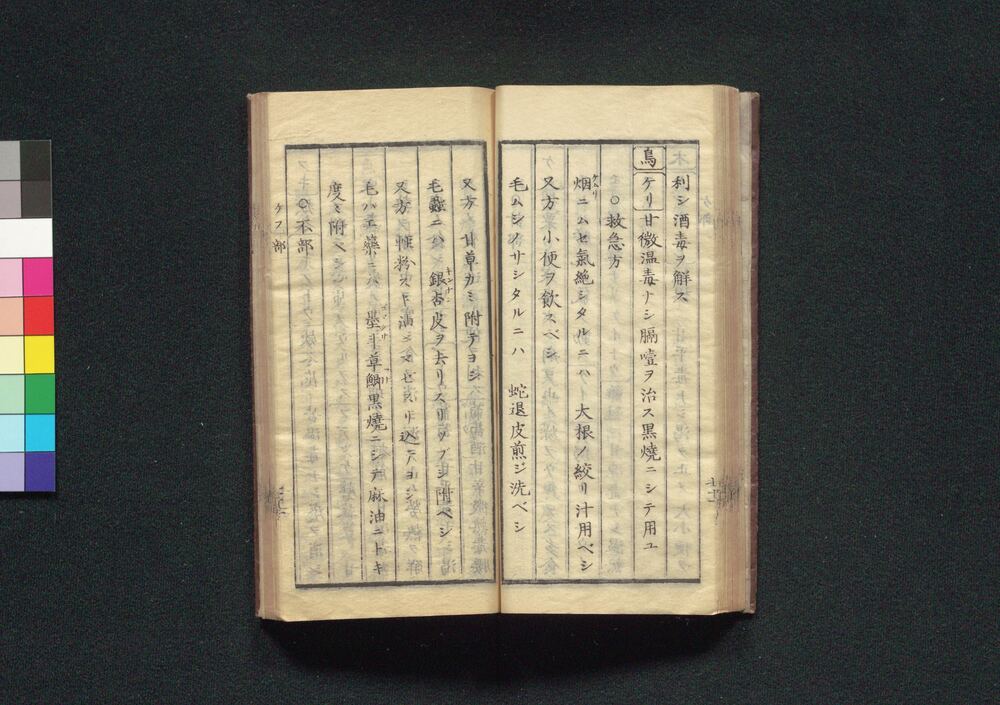 利シ酒毒ヲ解ス
鳥 ケリ 甘微温毒ナシ膈噎ヲ治ス黒焼ニシテ用ユ
○救急方
烟ニムセ氣絶シタルニハ 大根ノ絞リ汁用ベシ
ケムリ
又方 小便ヲ飲スベシ
毛ムシノサシタルニハ 蛇退皮煎ジ洗ベシ
又方 甘草カミ附テヨシ
毛蟲ニハ 銀杏皮ヲ去リスリツブシ附ベシ
ギンナン
又方
毛ハエ藥ニハ 草鱓黒焼ニシテ麻油ニトキ
度々附ベシ
○不部
ケフ部